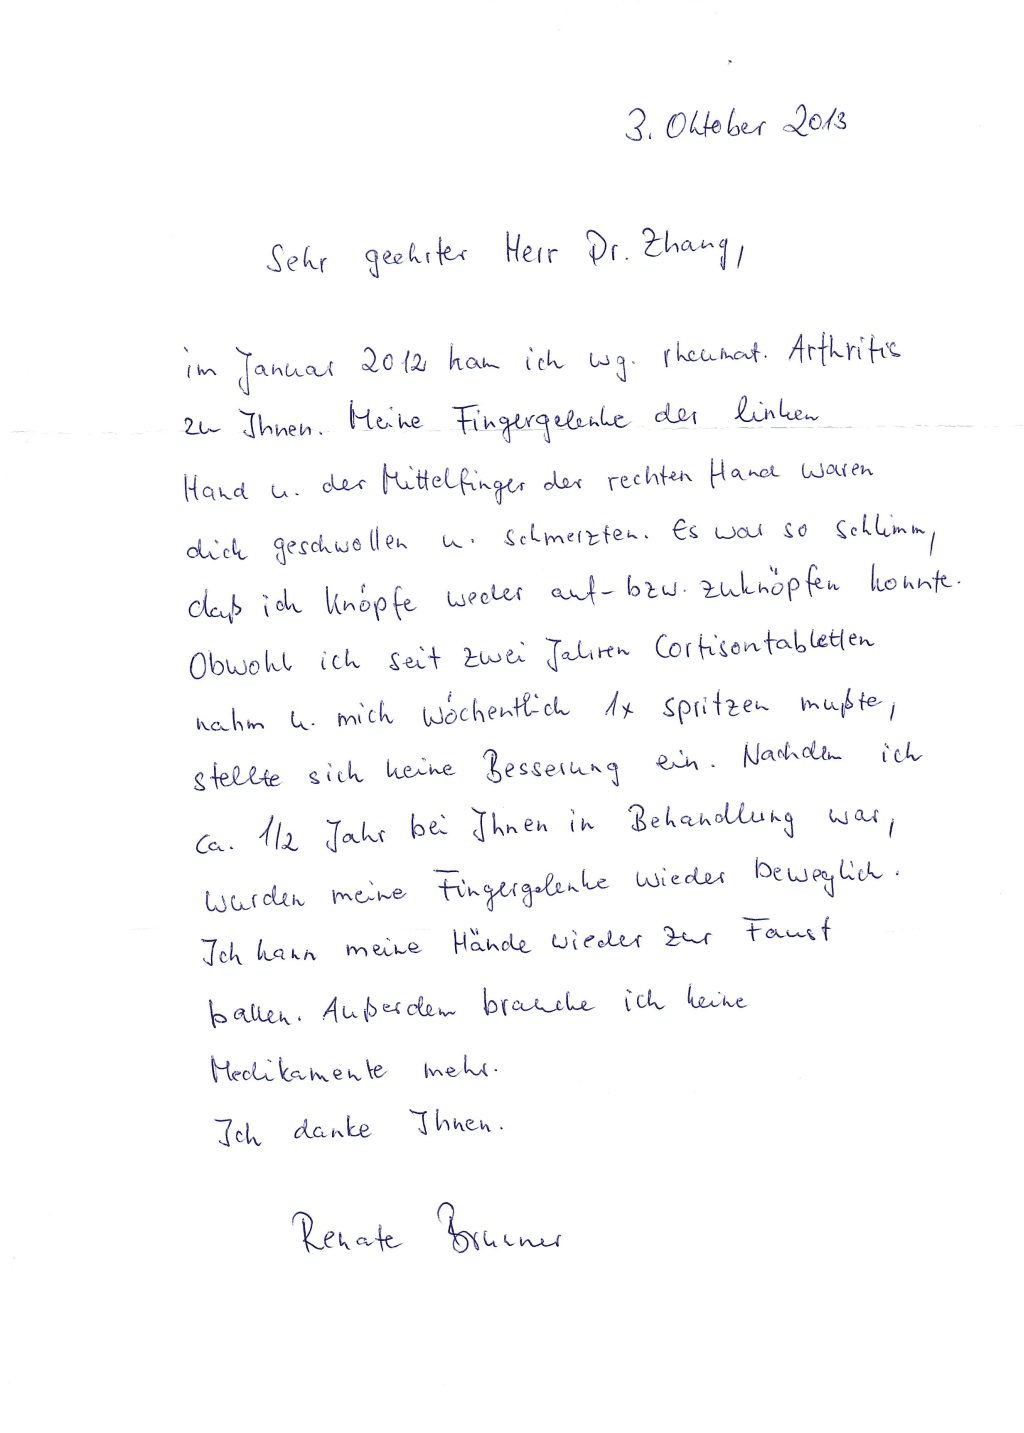 3. Oktober 2013
Sehr geehrter Herr Dr. Zhang,
im Januar 2012 kam ich wg. rheumat. Arthritis
zu Ihnen. Meine Fingergelenke der linken
Hand u. der Mittelfinger der rechten Hand waren
dick geschwollen u. schmerzten. Es war so schlimm,
daß ich Knöpfe weder auf- bzw. zuknöpfen konnte.
Obwohl ich seit zwei Jahren Cortisontabletten
nahm u. mich wöchentlich 1x spritzen mußte,
stellte sich keine Besserung ein. Nachdem ich
ca. 1/2 Jahr bei Ihnen in Behandlung war,
wurden meine Fingergelenke wieder beweglich.
Ich kann meine Hände wieder zur Faust
ballen. Außerdem brauche ich keine
Medikamente mehr.
Ich danke Ihnen.
Renate Brunner